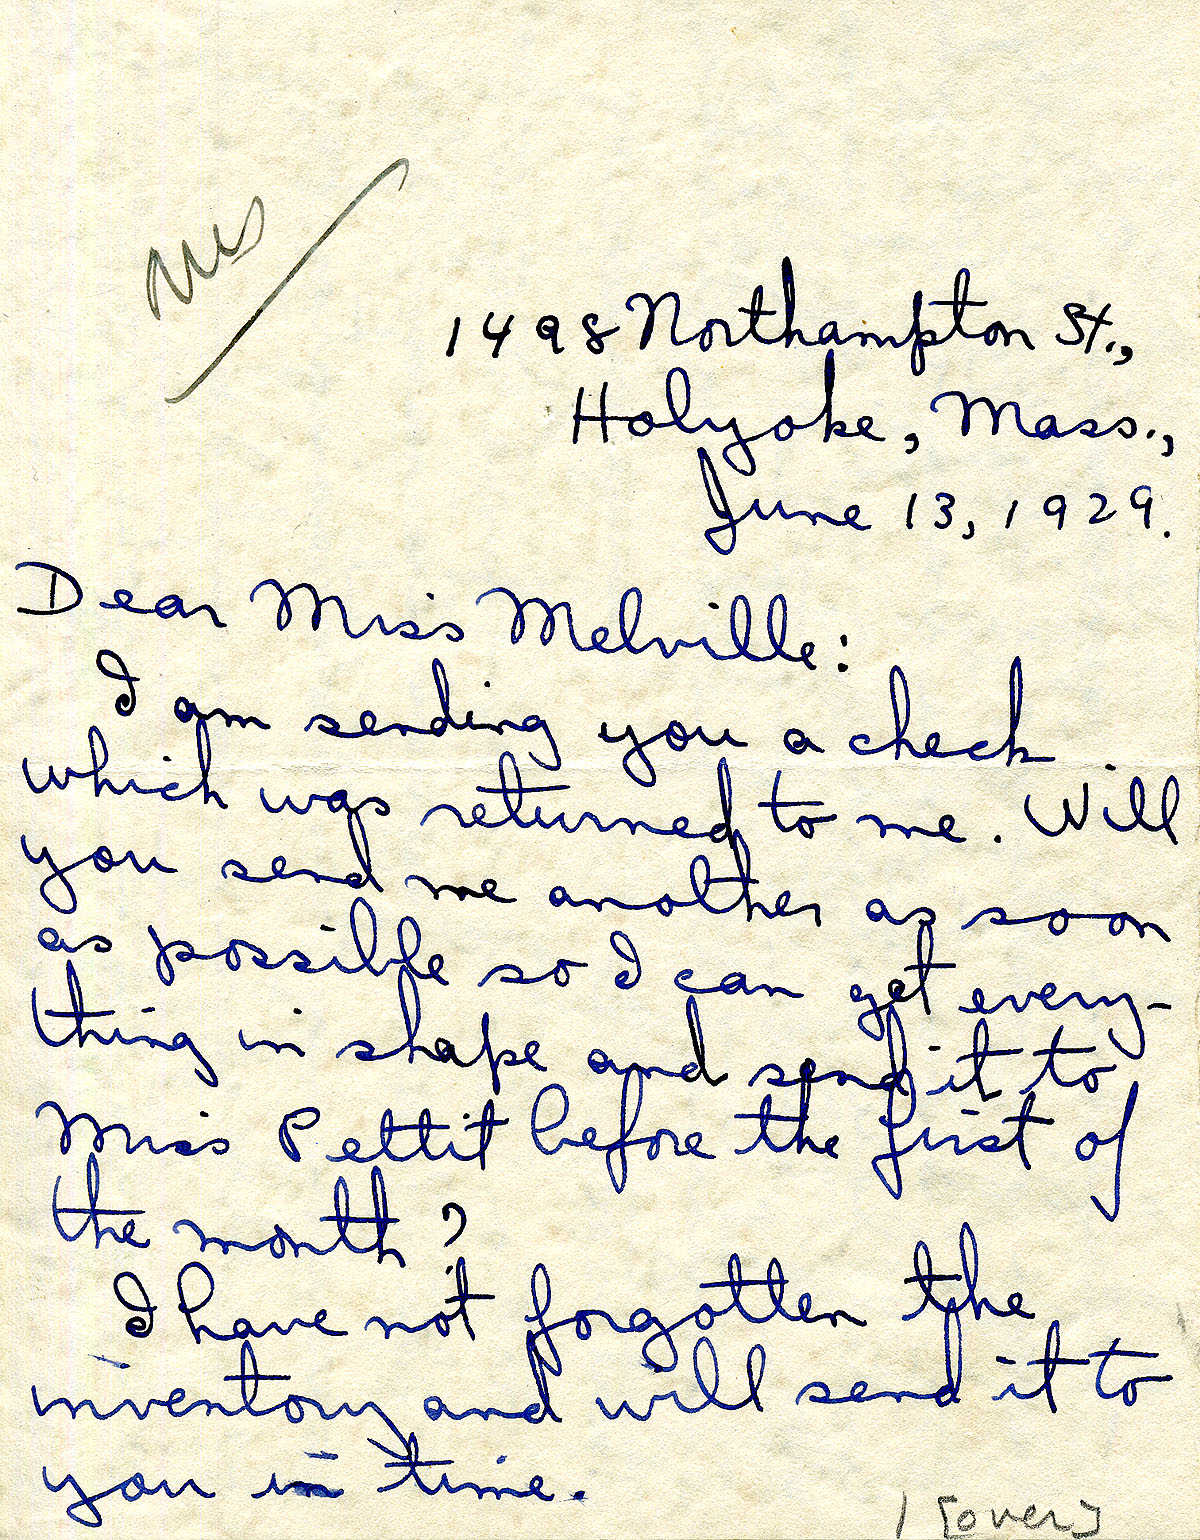 1498 Northampton St.,
Holyoke, Mass.,
June 13, 1929.
Dear Miss Melville:
I am sending you a check
which was returned to me. Will
you send me another as soon
as possible so I can get every-
thing in shape and send it to
Miss Pettit before the first of
the month?
I have not forgotten the
inventory and will send it to
you in time.
1 [over]